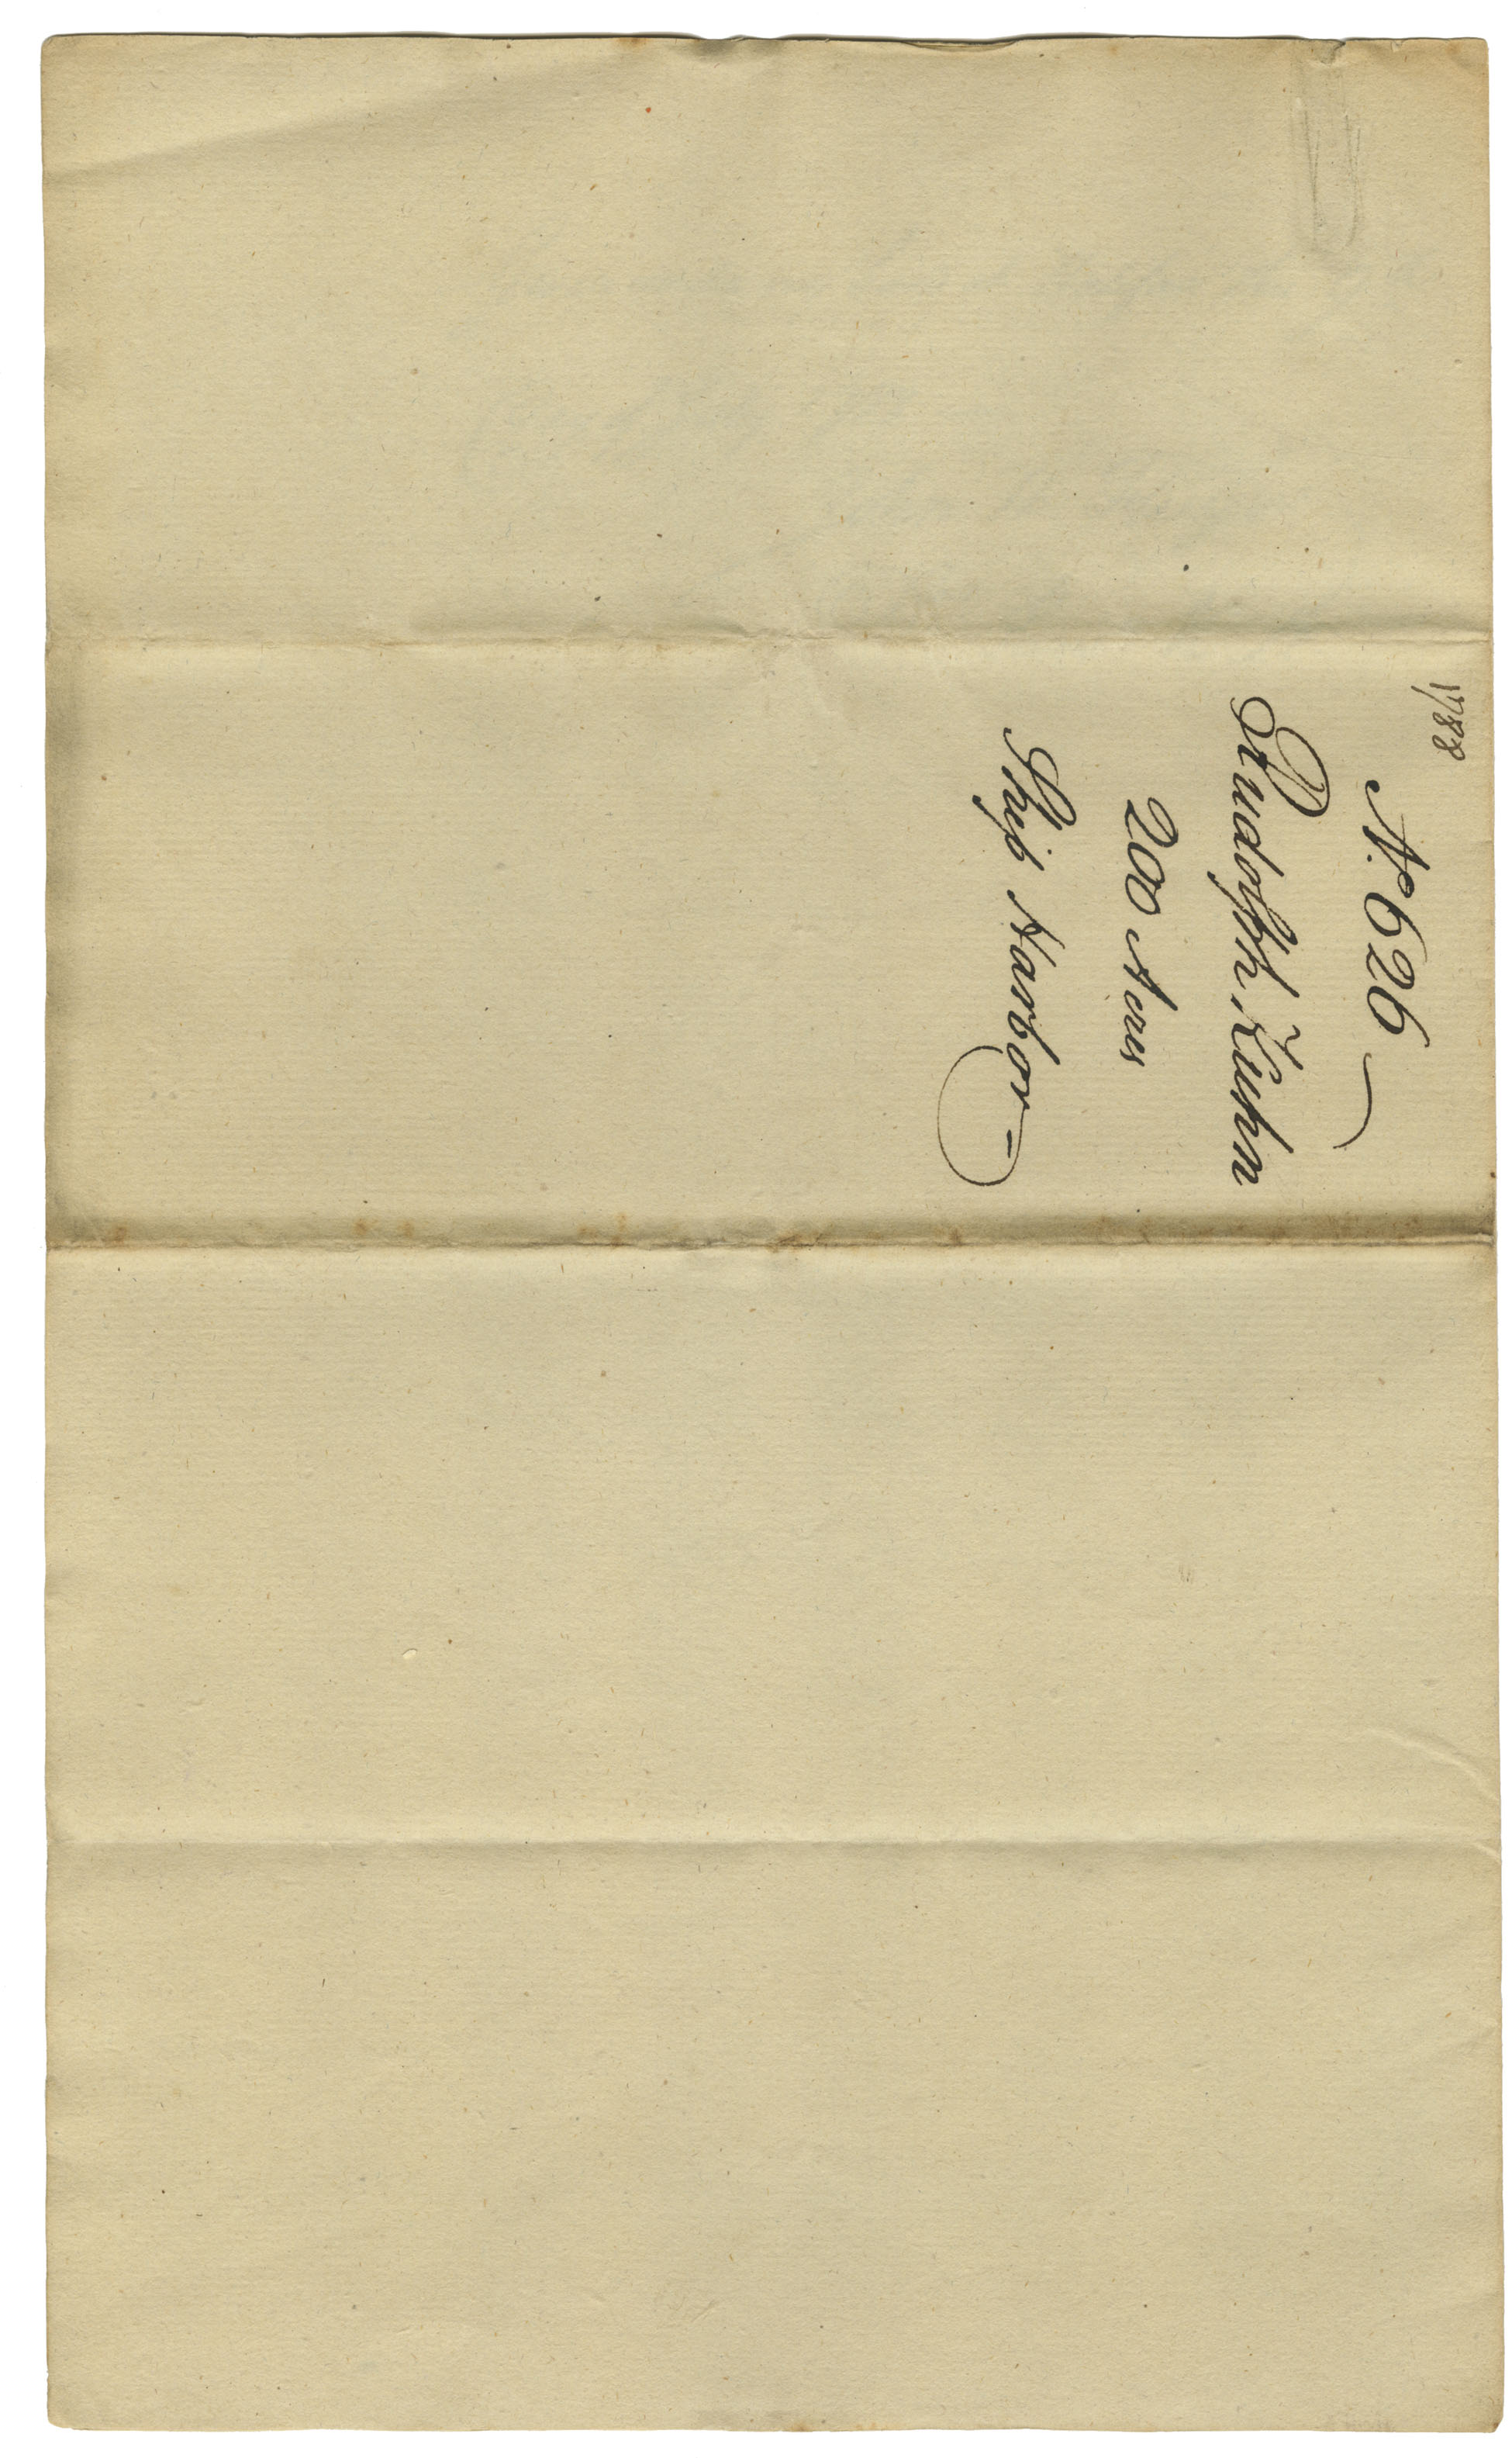 1788
No. 626
Rudolph Kuhn
200 Acres
Ship Harbor